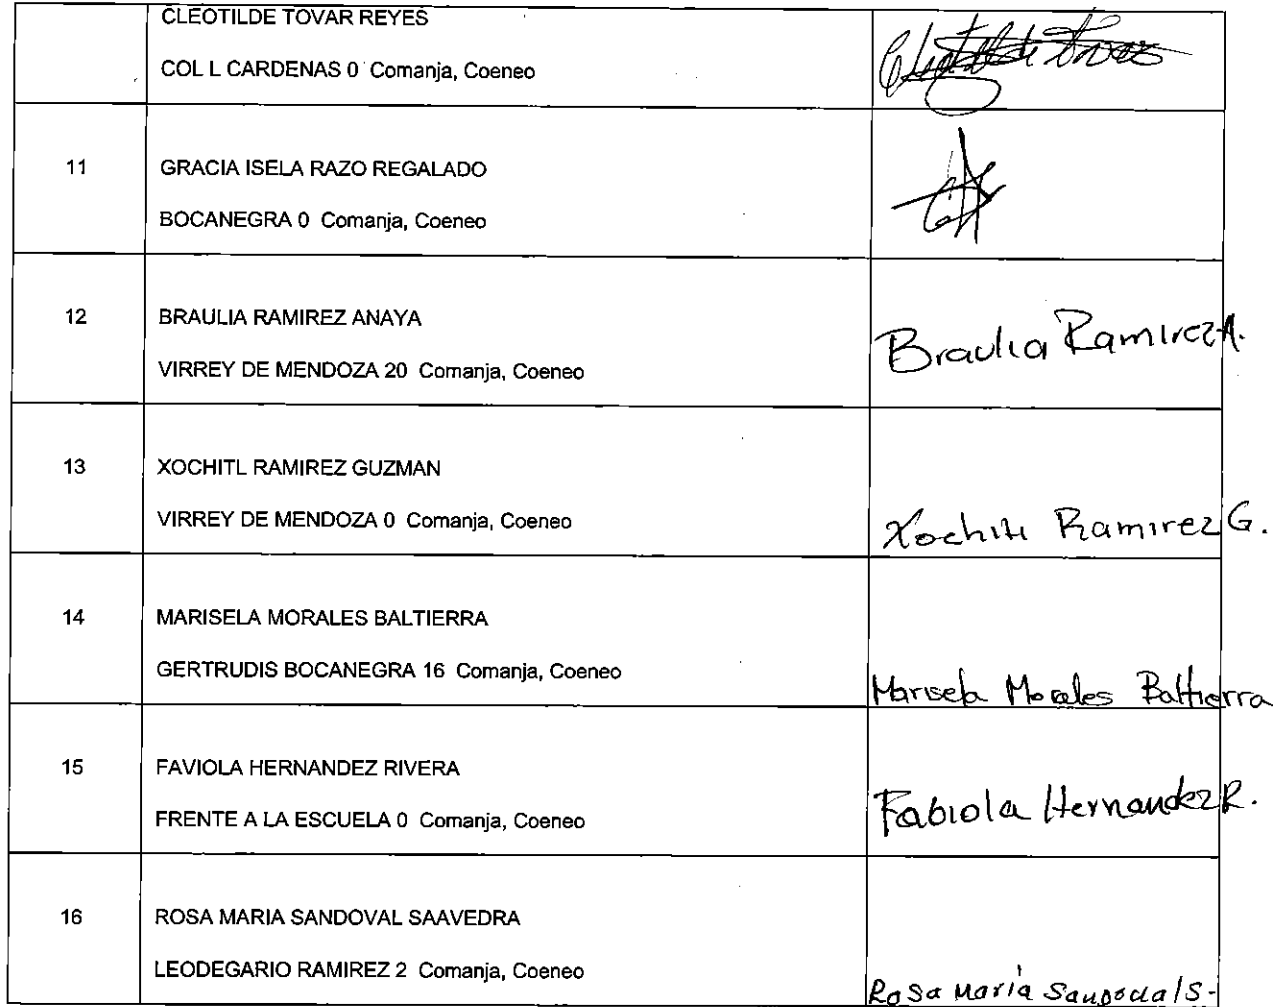 CLEOTILDE TOVAR REYES
COL L CARDENAS 0 Comanja, Coeneo
Cleotilde Tovar
11
GRACIA ISELA RAZO REGALADO
BOCANEGRA 0 Comanja, Coeneo
12
BRAULIA RAMIREZ ANAYA
VIRREY DE MENDOZA 20 Comanja, Coeneo
Braulia Ramirez A.
13
XOCHITL RAMIREZ GUZMAN
VIRREY DE MENDOZA 0 Comanja, Coeneo
Xochitl Ramirez G.
14
MARISELA MORALES BALTIERRA
GERTRUDIS BOCANEGRA 16 Comanja, Coeneo
Marisela Morales Baltierra
15
FAVIOLA HERNANDEZ RIVERA
FRENTE A LA ESCUELA 0 Comanja, Coeneo
Fabiola Hernandez R.
16
ROSA MARIA SANDOVAL SAAVEDRA
LEODEGARIO RAMIREZ 2 Comanja, Coeneo
Rosa María Sandoval S-